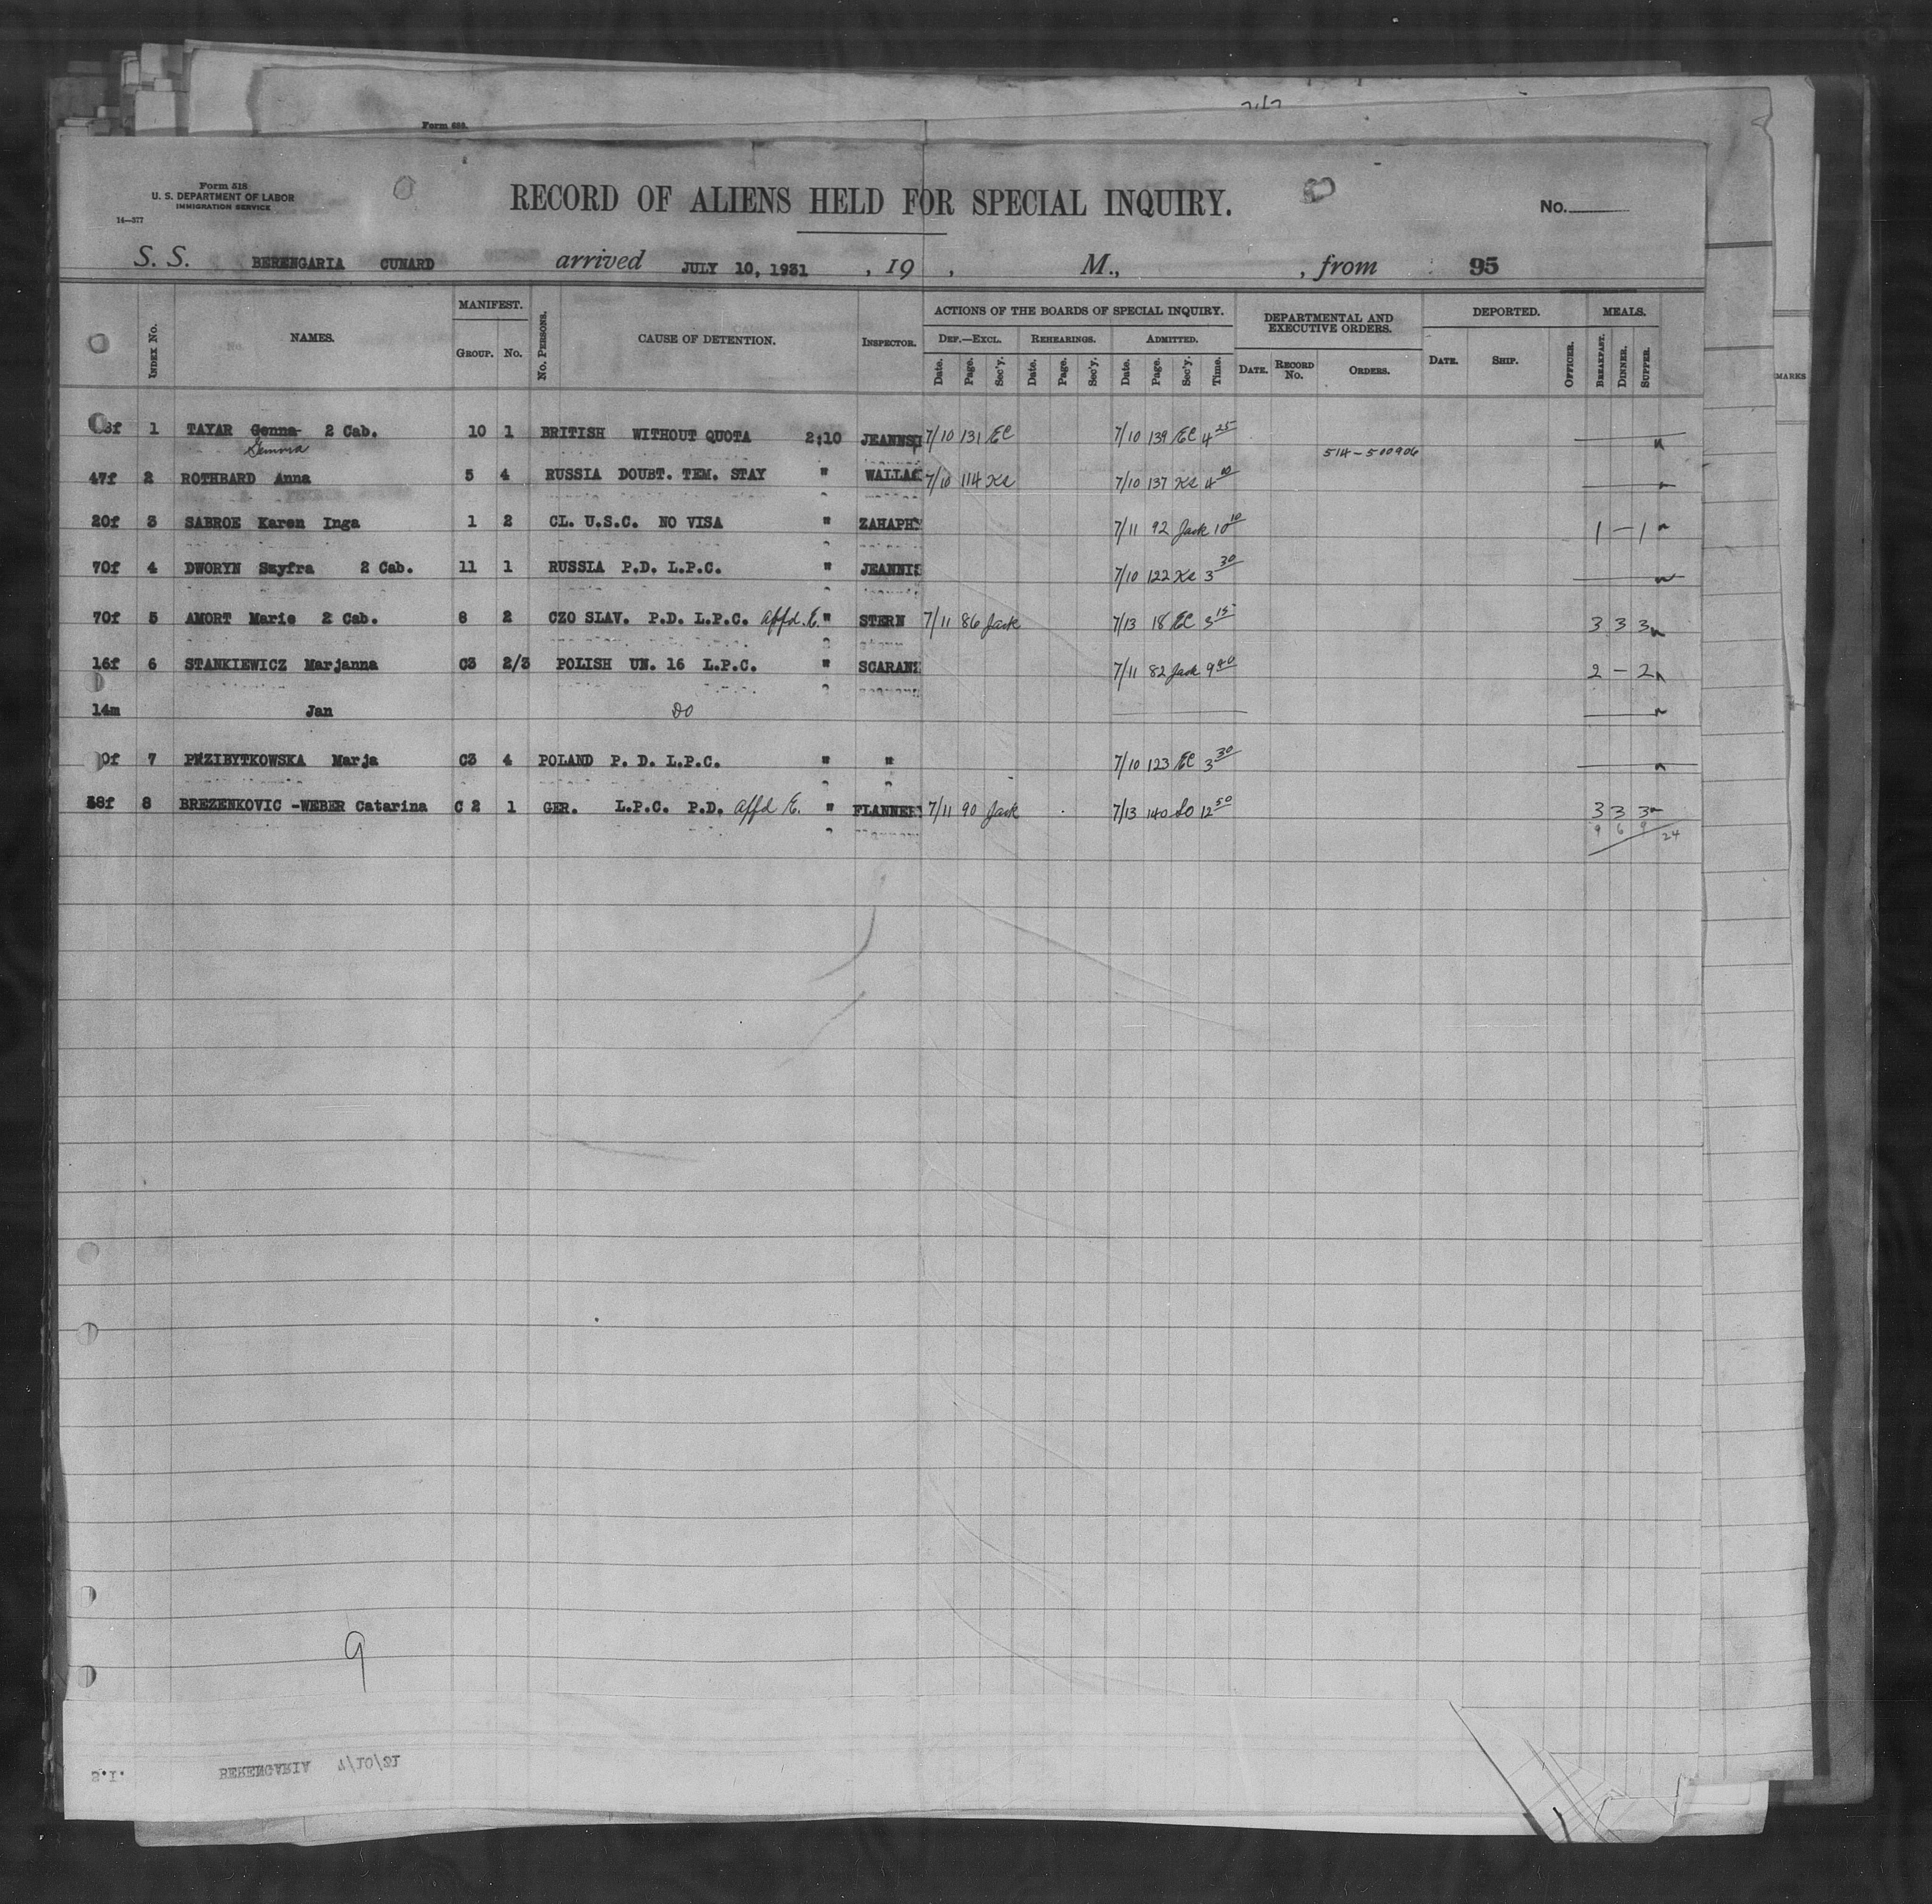 Form 659.
Form 518
U. S. DEPARTMENT OF LABOR
IMMIGRATION SERVICE
14—377
RECORD OF ALIENS HELD FOR SPECIAL INQUIRY.
No.
S. S. BERENGARIA CUNARD arrived JULY 10, 1931 , 19 , M., , from 95
INDEX NO. NAMES. MANIFEST. GROUP. NO. NO. PERSONS. CAUSE OF DETENTION. INSPECTOR. ACTIONS OF THE BOARDS OF SPECIAL INQUIRY. DEPARTMENTAL AND EXECUTIVE ORDERS. DEPORTED. MEALS.
DEF.—EXCL. REHEARINGS. ADMITTED.
Date. Page. Sec'y. Date. Page. Sec'y. Date. Page. Sec'y. Time. DATE. RECORD NO. ORDERS. DATE. SHIP. OFFICER. BREAKFAST. DINNER. SUPPER.
MARKS
8f 1 TAYAR Genna 2 Cab. 10 1 BRITISH WITHOUT QUOTA 2:10 JEANNS 7/10 131 EC 7/10 139 EC 4 25
Gemma
514-500906
47f 2 ROTHBARD Anna 5 4 RUSSIA DOUBT. TEM. STAY " WALLAC 7/10 114 KS 7/10 137 KS 4 00
20f 3 SABROE Karen Inga 1 2 CL. U.S.C. NO VISA " ZAHAPHY 7/11 92 Jack 10 10 1 — 1
70f 4 DWORYN Szyfra 2 Cab. 11 1 RUSSIA P.D. L.P.C. " JEANNIS 7/10 122 KS 3 30
70f 5 AMORT Marie 2 Cab. 8 2 CZO SLAV. P.D. L.P.C. affd. E. " STERN 7/11 86 Jack 7/13 18 EC 3 15 3 3 3
16f 6 STANKIEWICZ Marjanna C3 2/3 POLISH UN. 16 L.P.C. " SCARANI 7/11 82 Jack 9 40 2 — 2
14m Jan DO
0f 7 PRZIBYTKOWSKA Marja C3 4 POLAND P. D. L.P.C. " " 7/10 123 EC 3 30
48f 8 BREZENKOVIC -WEBER Catarina C 2 1 GER. L.P.C. P.D. affd E. " FLANNERY 7/11 90 Jack 7/13 140 LO 12 50 3 3 3
9 6 9 24
9
S.I. BERENGARIA 7/10/31